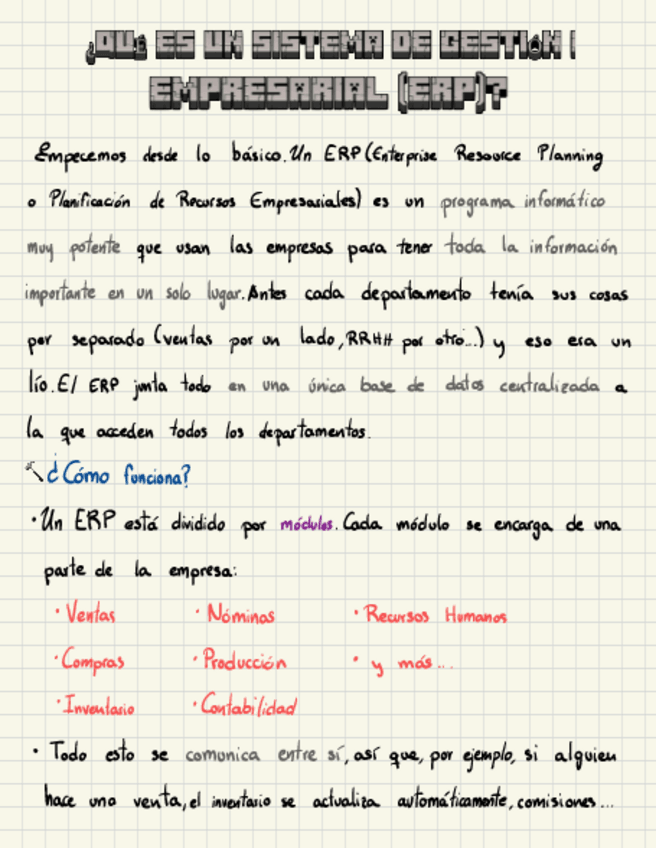 ¿QUÉ ES UN SISTEMA DE GESTIÓN
EMPRESARIAL (ERP)?
Empecemos desde lo básico. Un ERP (Enterprise Resource Planning
o Planificación de Recursos Empresariales) es un programa informático
muy potente que usan las empresas para tener toda la información
importante en un solo lugar. Antes cada departamento tenía sus cosas
por separado (ventas por un lado, RRHH por otro...) y eso era un
lío. El ERP junta todo en una única base de datos centralizada a
la que acceden todos los departamentos.
¿Cómo funciona?
· Un ERP está dividido por módulos. Cada módulo se encarga de una
parte de la empresa:
· Ventas · Nóminas · Recursos Humanos
· Compras · Producción · y más...
· Inventario · Contabilidad
· Todo esto se comunica entre sí, así que, por ejemplo, si alguien
hace una venta, el inventario se actualiza automáticamente, comisiones...